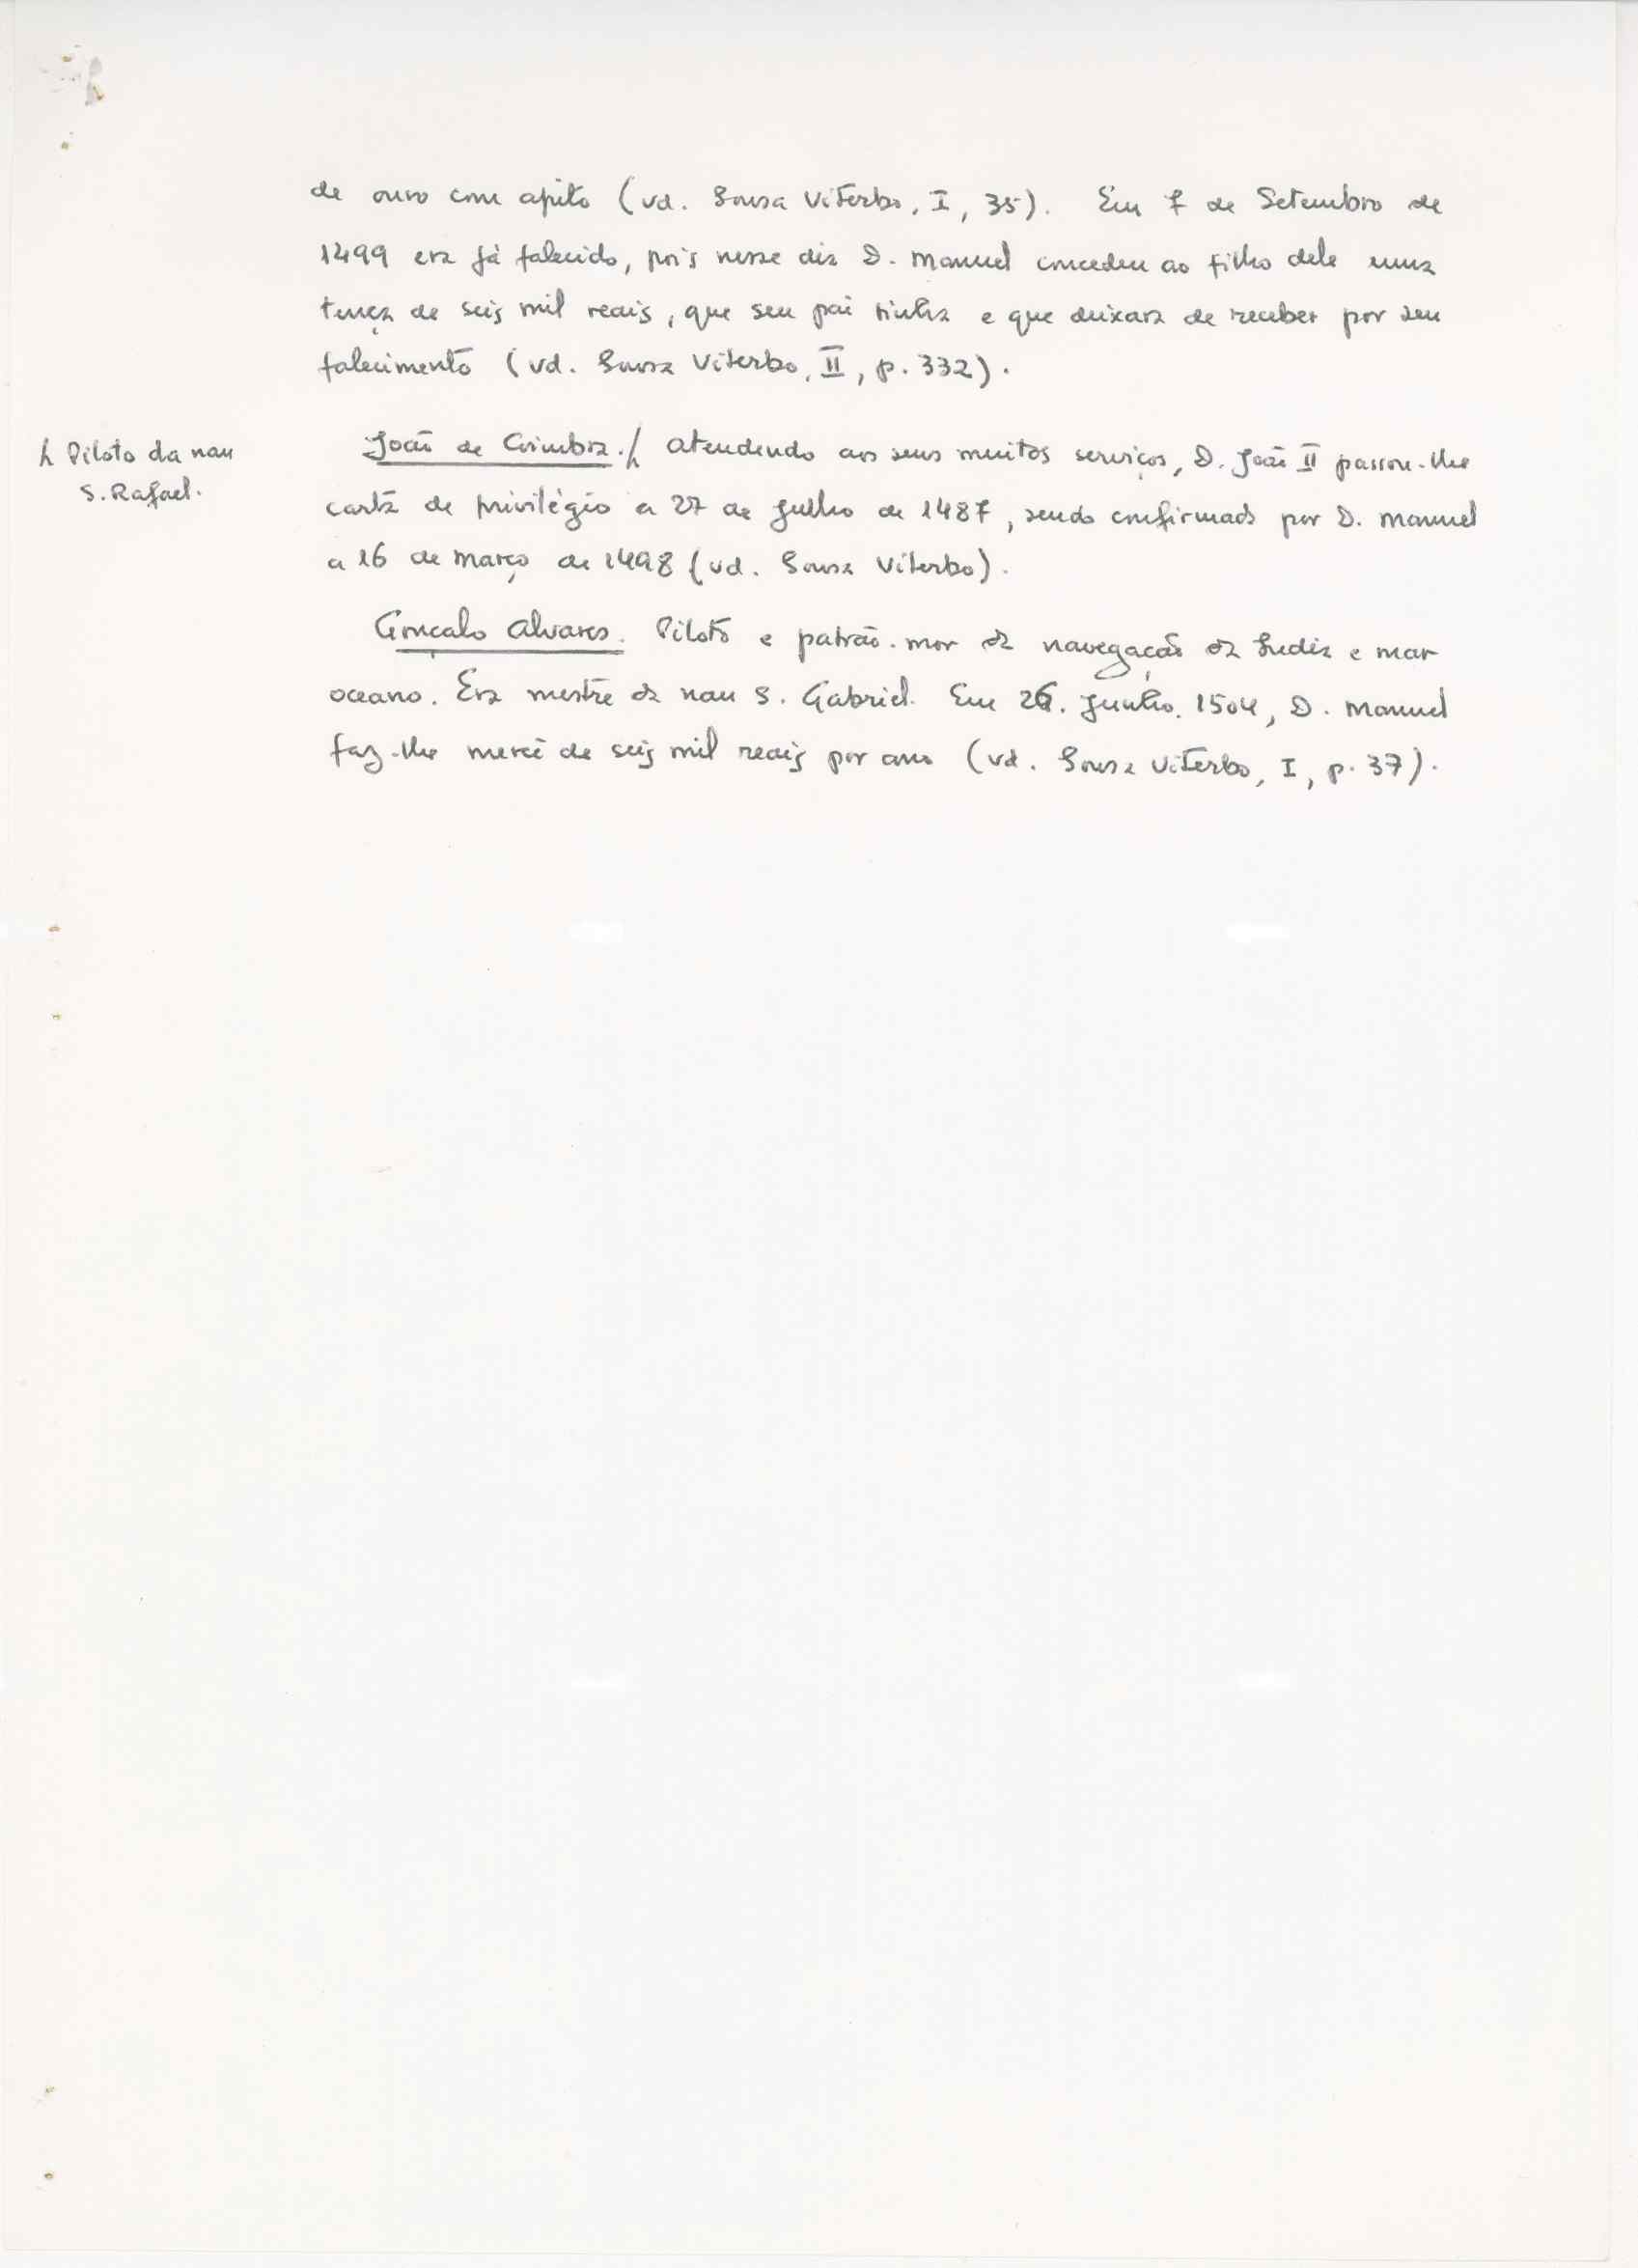 de ouro com apito (vd. Sousa Viterbo, I, 35). Em 7 de Setembro de
1499 era já falecido, pois nesse dia D. Manuel concedeu ao filho dele uma
tença de seis mil reais, que seu pai tinha e que deixara de receber por seu
falecimento (vd. Sousa Viterbo, II, p. 332).
Piloto da nau
S. Rafael.
João de Coimbra. Atendendo aos seus muitos serviços, D. João II passou-lhe
carta de privilégio a 27 de Julho de 1487, sendo confirmado por D. Manuel
a 16 de Março de 1498 (vd. Sousa Viterbo).
Gonçalo Alvares. Piloto e patrão-mor da navegação da India e mar
oceano. Era mestre da nau S. Gabriel. Em 26. Junho. 1504, D. Manuel
faz-lhe mercê de seis mil reais por ano (vd. Sousa Viterbo, I, p. 37).